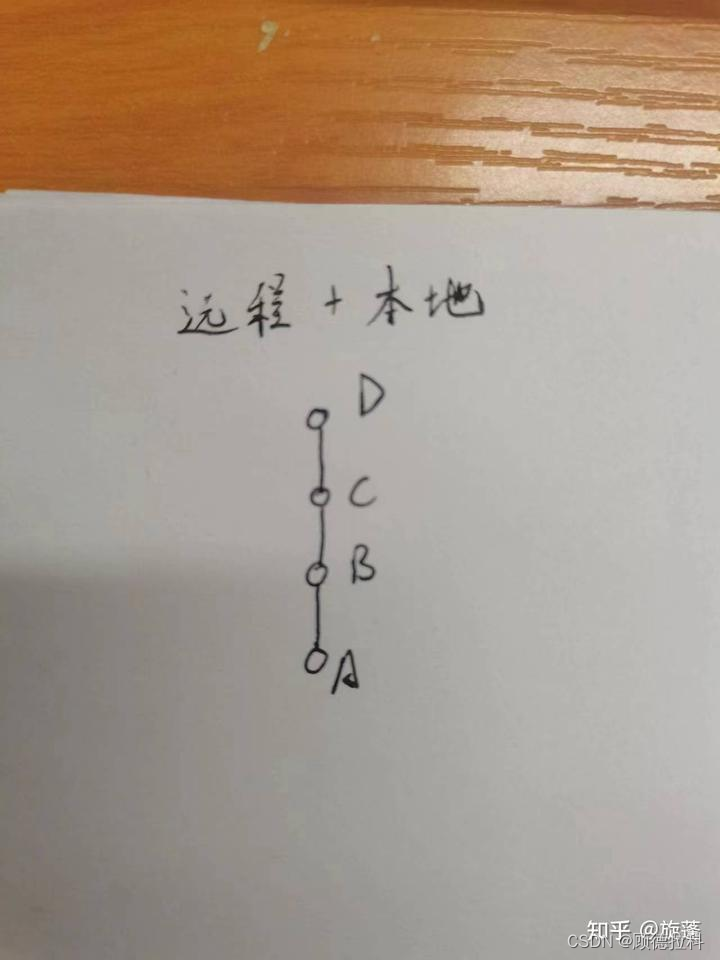 远程 + 本地
D
C
B
A
知乎 @旋蓬
CSDN @顾德拉科